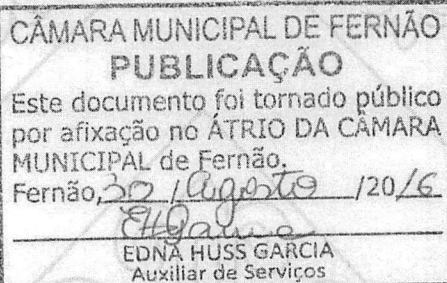 CÂMARA MUNICIPAL DE FERNÃO
PUBLICAÇÃO
Este documento foi tornado público
por afixação no ÁTRIO DA CÂMARA
MUNICIPAL de Fernão.
Fernão, 30 / Agosto /2016
EHGarcia
EDNA HUSS GARCIA
Auxiliar de Serviços